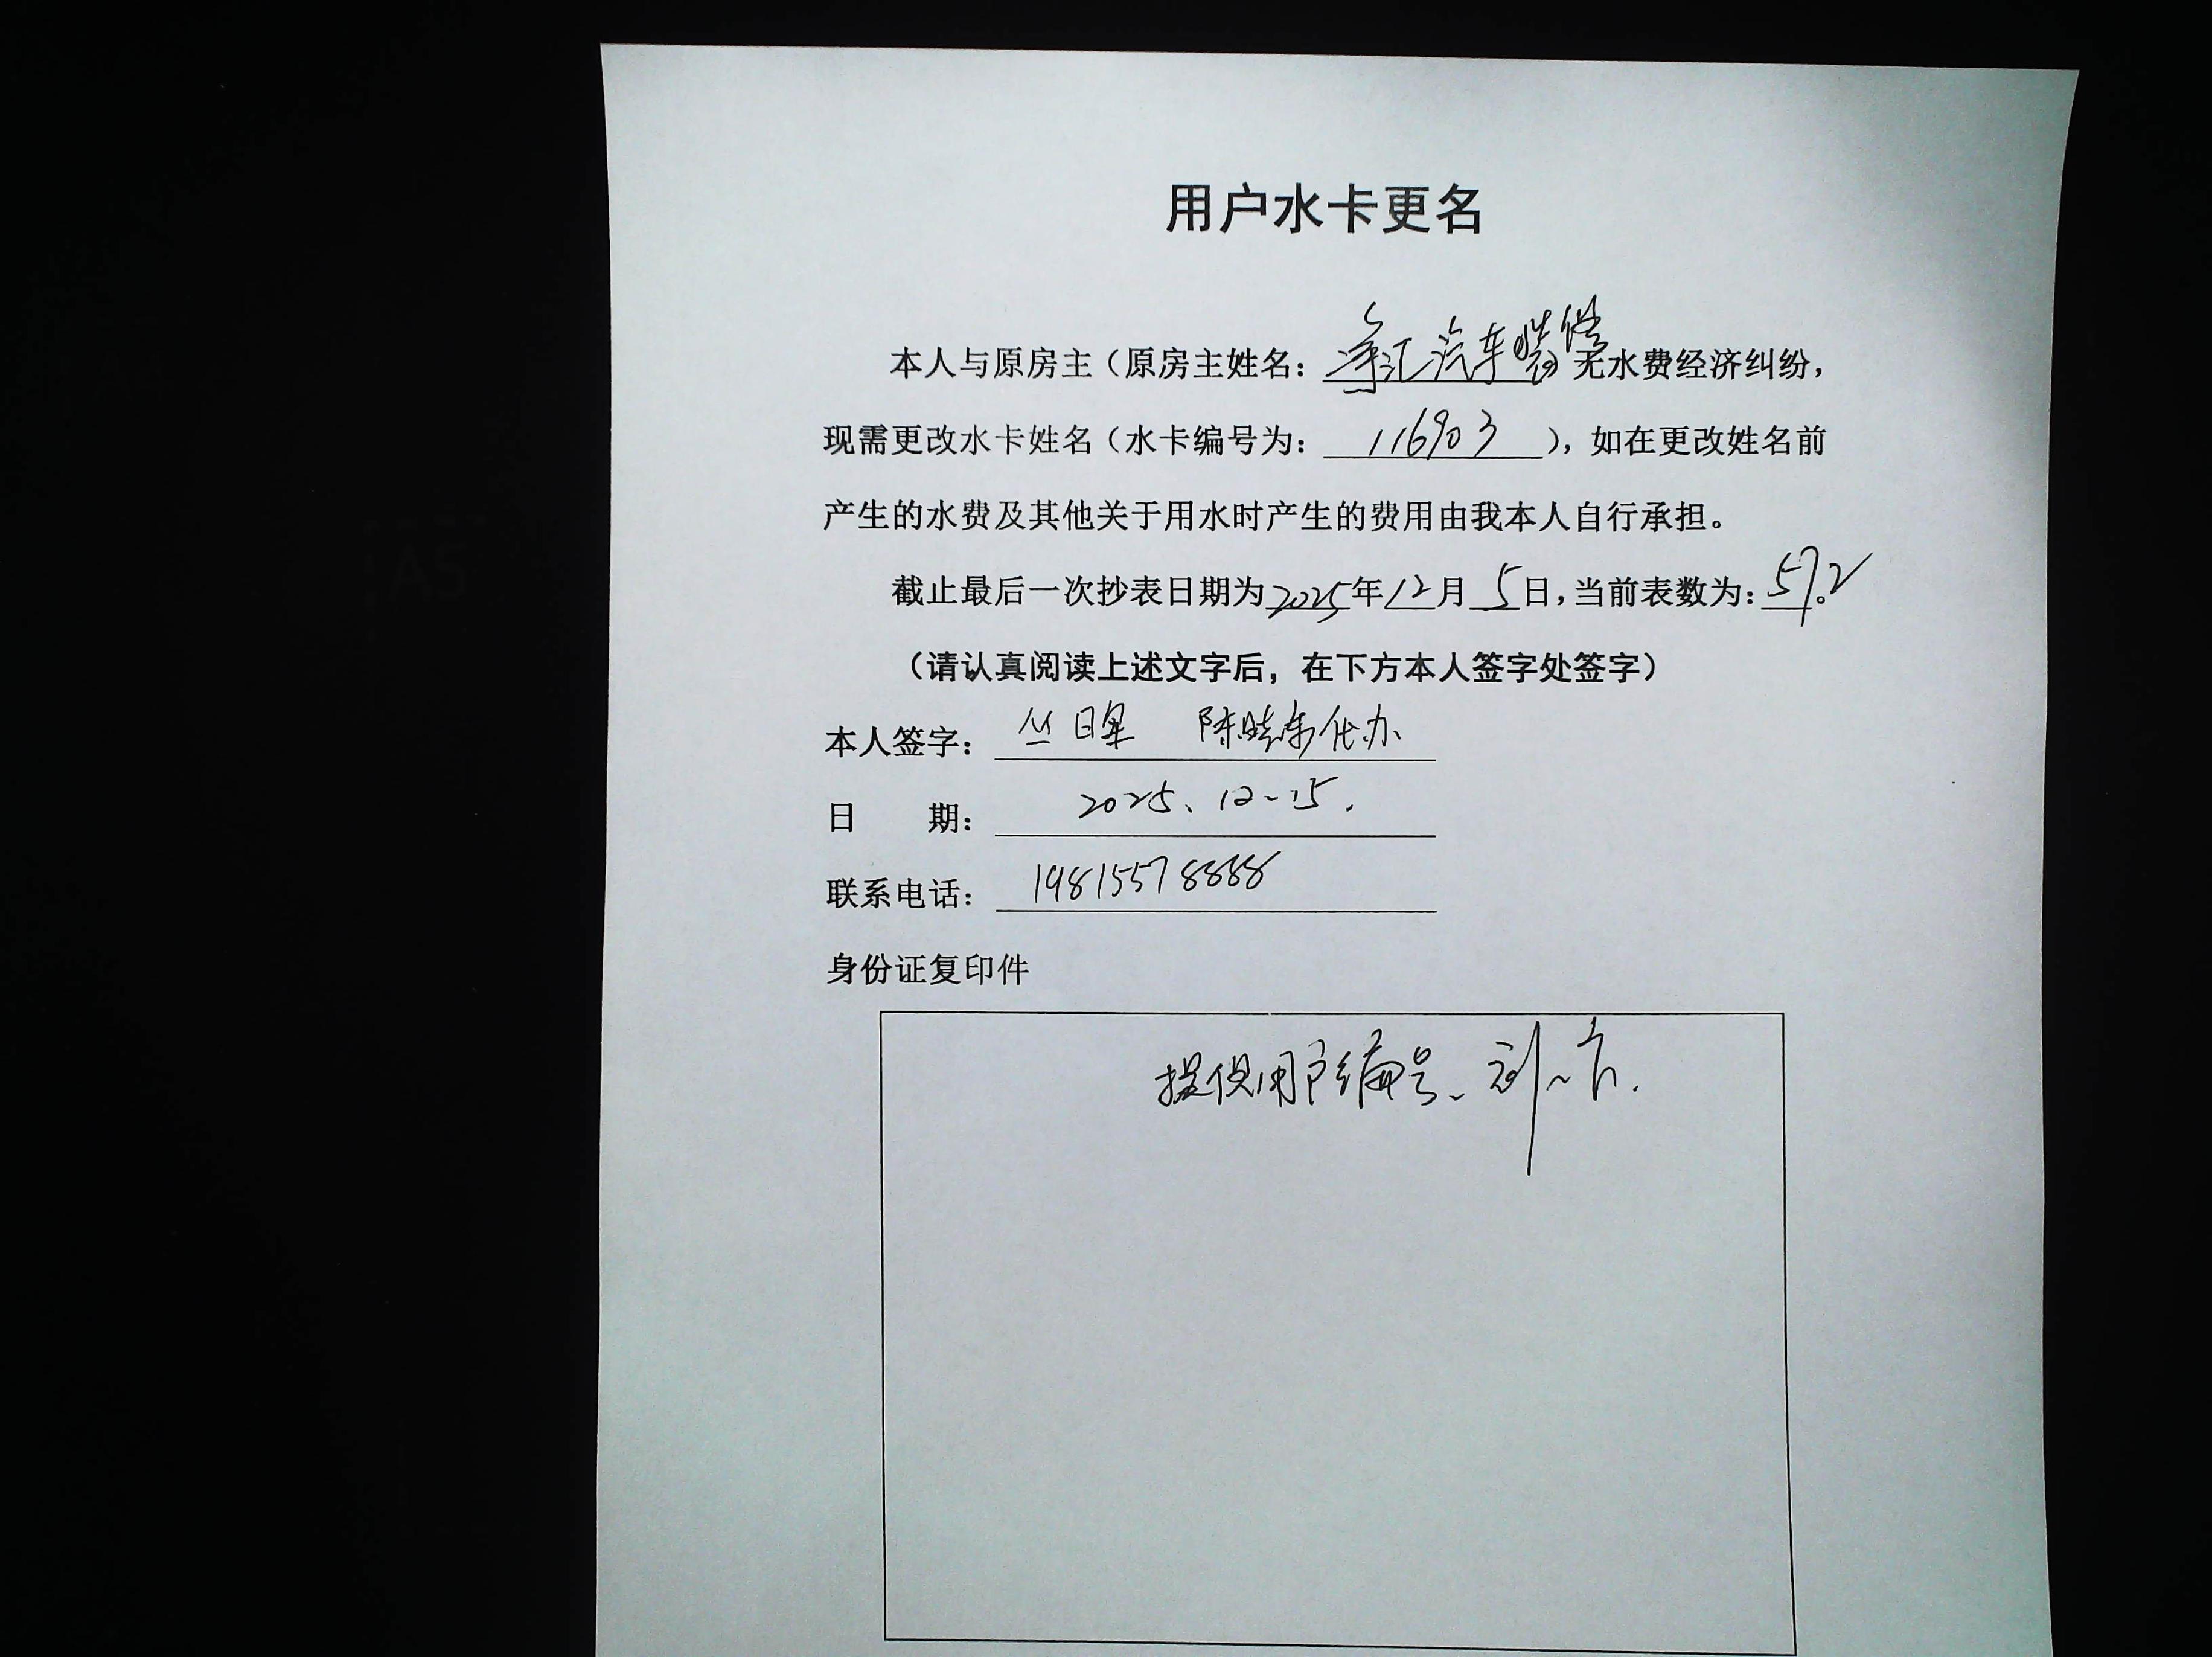 用户水卡更名
本人与原房主（原房主姓名：汇汽车装饰 无水费经济纠纷，
现需更改水卡姓名（水卡编号为：116903），如在更改姓名前
产生的水费及其他关于用水时产生的费用由我本人自行承担。
截止最后一次抄表日期为2025年12月5日，当前表数为：572。
（请认真阅读上述文字后，在下方本人签字处签字）
本人签字：丛日军 陈晓东代办
日 期：2025、12-15.
联系电话：19815578888
身份证复印件
提供用户编号、